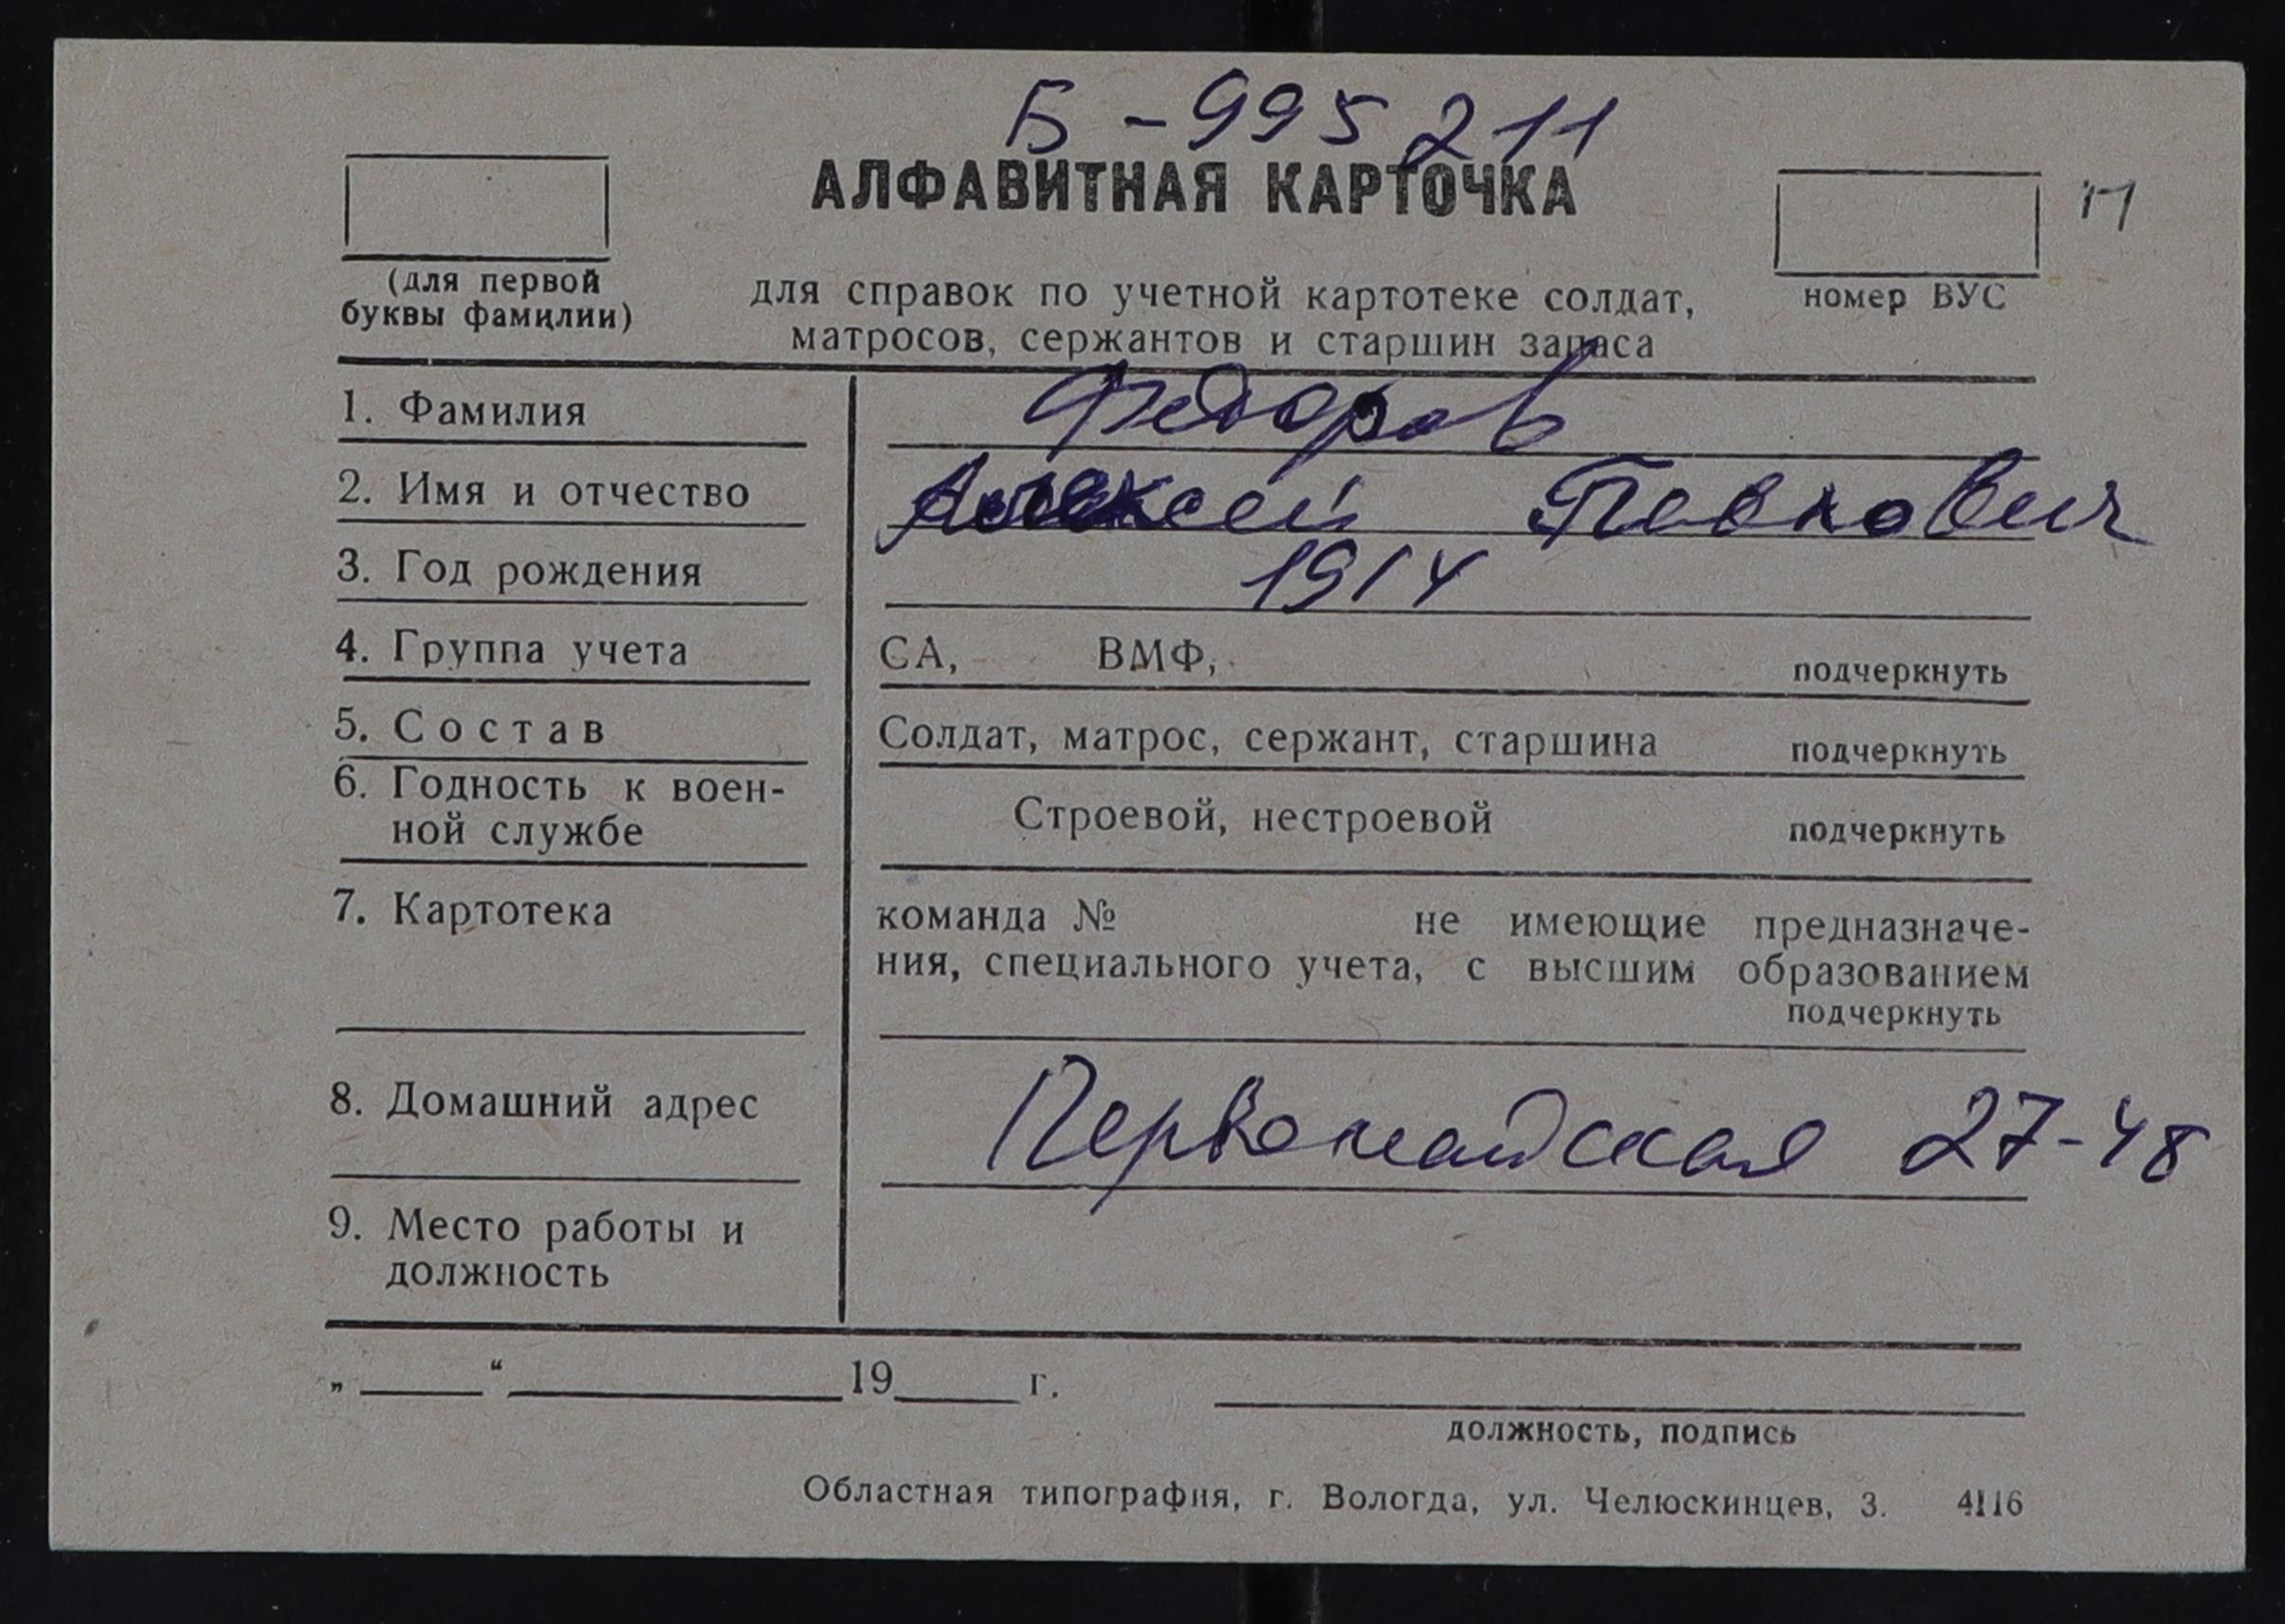 Б-995211
АЛФАВИТНАЯ КАРТОЧКА
(для первой
буквы фамилии)
для справок по учетной картотеке солдат,
матросов, сержантов и старшин запаса
номер ВУС
1. Фамилия Федоров
2. Имя и отчество Алексей Павлович
3. Год рождения 1914
4. Группа учета СА, ВМФ, подчеркнуть
5. Состав Солдат, матрос, сержант, старшина подчеркнуть
6. Годность к воен-
ной службе Строевой, нестроевой подчеркнуть
7. Картотека команда № не имеющие предназначе-
ния, специального учета, с высшим образованием
подчеркнуть
8. Домашний адрес Первомайская 27-48
9. Место работы и
должность
„ “ 19 г.
должность, подпись
Областная типография, г. Вологда, ул. Челюскинцев, 3. 4116